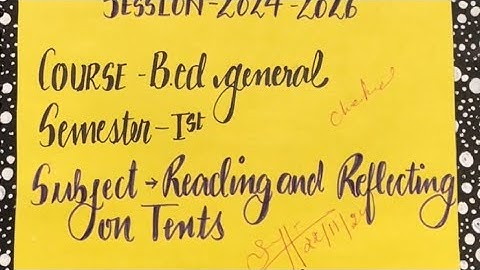 SESSION-2024-2026
COURSE - B.ed general
Semester - Ist
Checked
Subject → Reading and Reflecting
on Tents
22/11/24